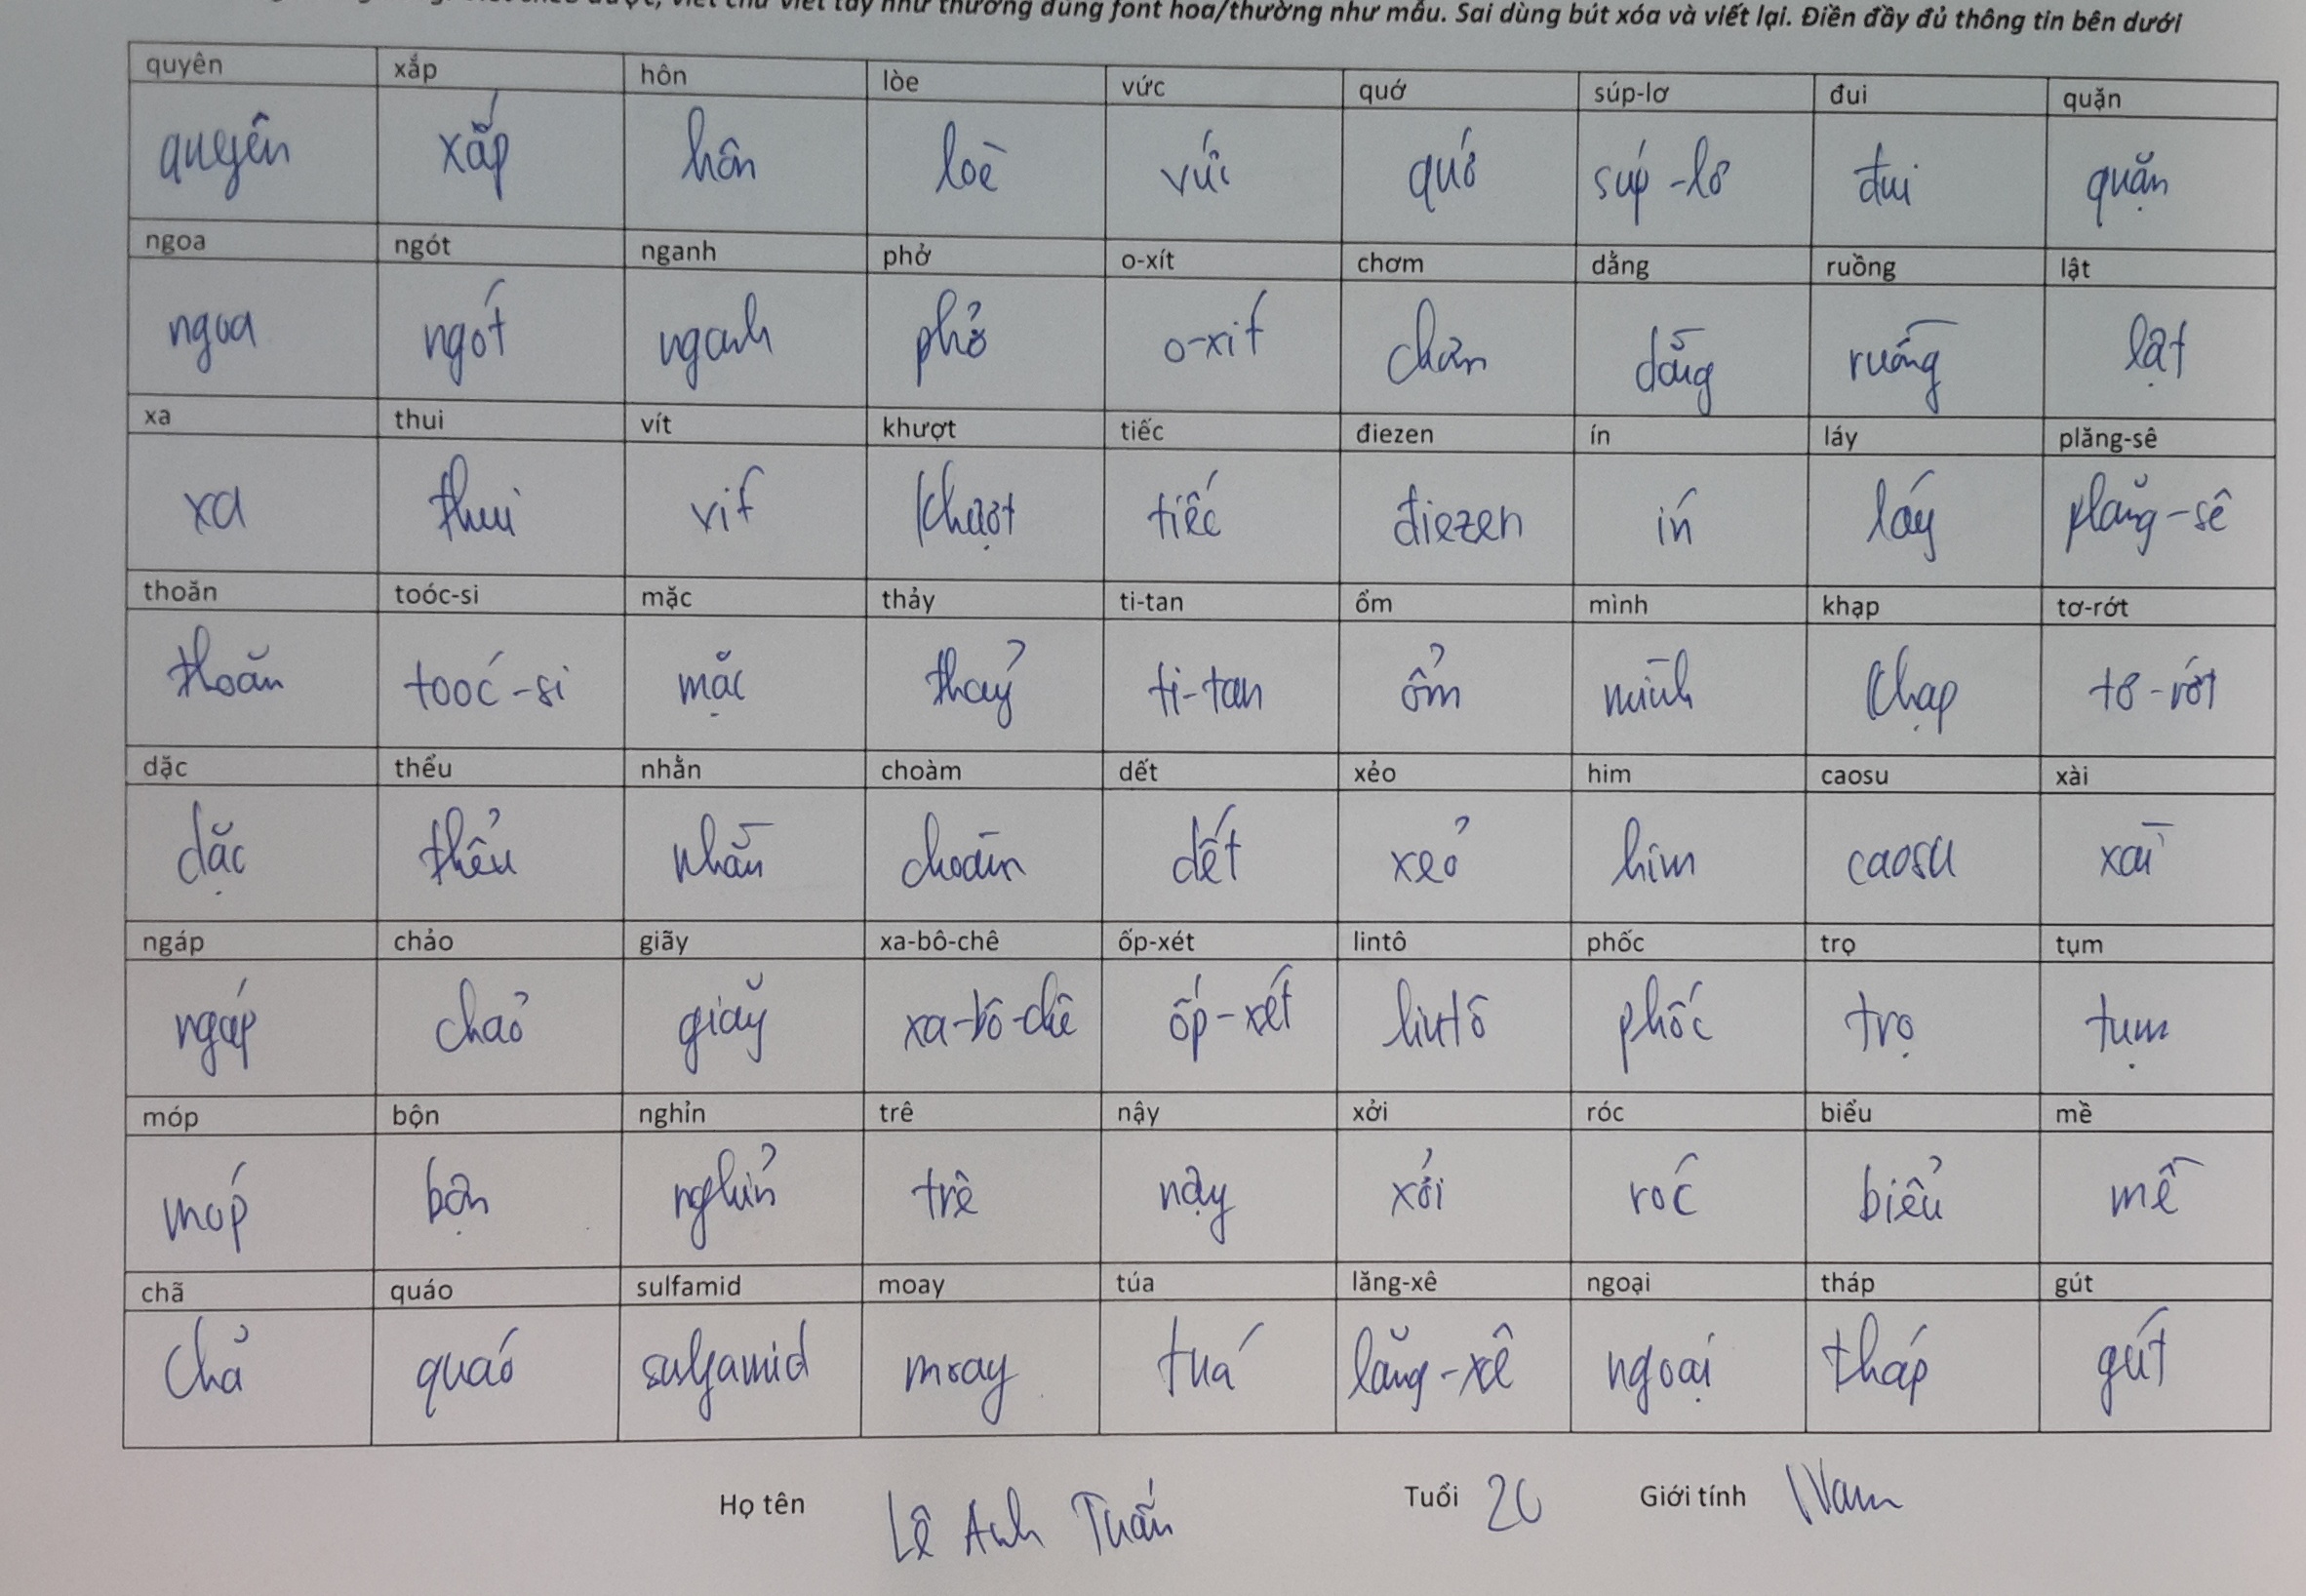 viết chữ viết tay như thường dùng font hoa/thường như mẫu. Sai dùng bút xóa và viết lại. Điền đầy đủ thông tin bên dưới
quyên xắp hôn lòe vức quớ súp-lơ đui quặn
quyên xắp hôn loè vức quớ súp-lơ đui quặn
ngoa ngót nganh phở o-xít chơm dằng ruồng lật
ngoa ngót nganh phở o-xít chơm dằng ruồng lật
xa thui vít khượt tiếc điezen ín láy plăng-sê
xa thui vít khượt tiếc điezen ín láy plăng-sê
thoăn toóc-si mặc thảy ti-tan ổm mình khạp tơ-rớt
thoăn toóc-si mặc thảy ti-tan ổm mình khạp tơ-rớt
dặc thểu nhằn choàm dết xẻo him caosu xài
dặc thểu nhằn choàm dết xẻo him caosu xài
ngáp chảo giãy xa-bô-chê ốp-xét lintô phốc trọ tụm
ngáp chảo giãy xa-bô-chê ốp-xét lintô phốc trọ tụm
móp bộn nghỉn trê nậy xởi róc biểu mề
móp bộn nghỉn trê nậy xởi róc biểu mề
chã quáo sulfamid moay túa lăng-xê ngoại tháp gút
chả quáo sulfamid moay tuá lăng-xê ngoại tháp gút
Họ tên Lê Anh Tuấn Tuổi 20 Giới tính Nam